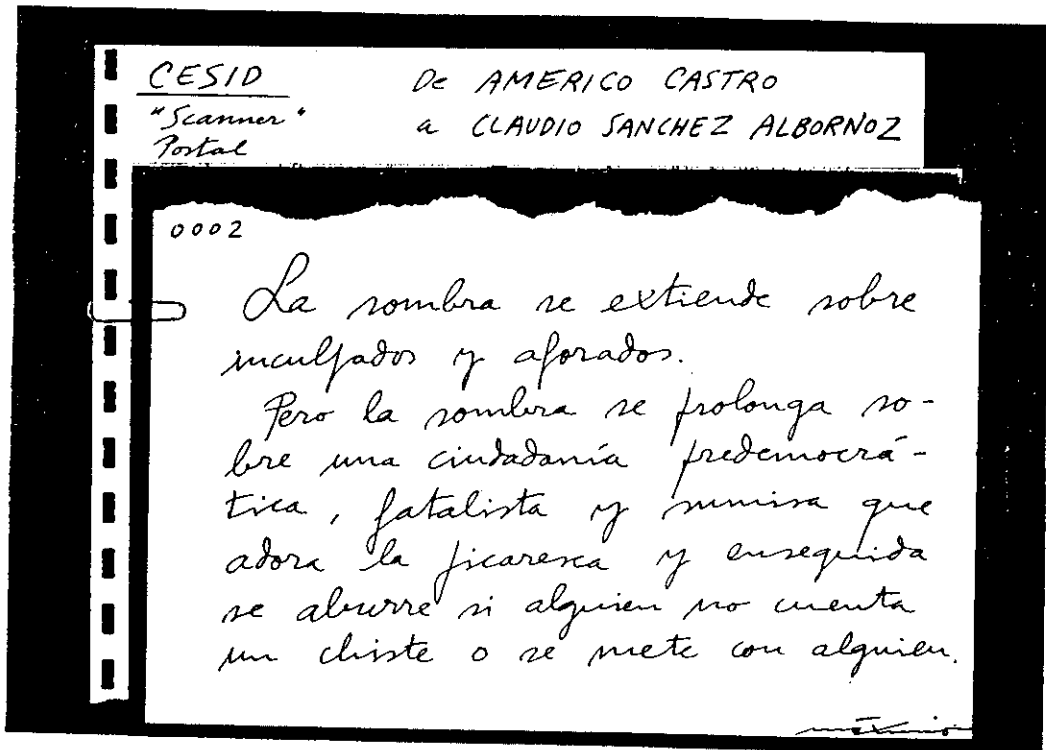 CESID
"Scanner"
Postal
De AMERICO CASTRO
a CLAUDIO SANCHEZ ALBORNOZ
0002
La sombra se extiende sobre
inculpados y aforados.
Pero la sombra se prolonga so-
bre una ciudadanía predemocrá-
tica, fatalista y sumisa que
adora la picaresca y enseguida
se aburre si alguien no cuenta
un chiste o se mete con alguien.
máximo